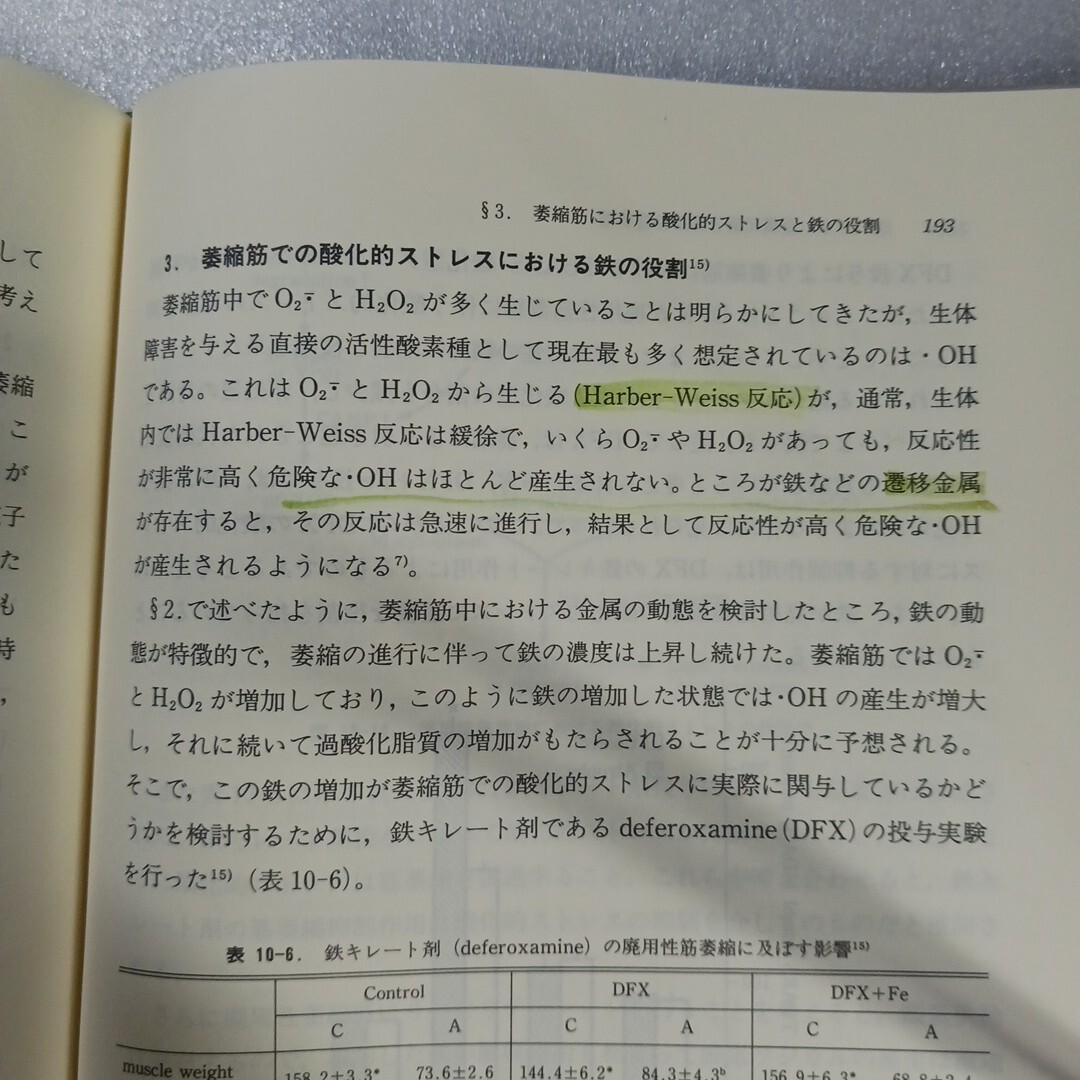 して
考え
萎縮
こ
が
子
た
も
時
§3. 萎縮筋における酸化的ストレスと鉄の役割 193
3. 萎縮筋での酸化的ストレスにおける鉄の役割¹⁵⁾
萎縮筋中で O₂⁻・ と H₂O₂ が多く生じていることは明らかにしてきたが，生体
障害を与える直接の活性酸素種として現在最も多く想定されているのは・OH
である。これは O₂⁻・ と H₂O₂ から生じる (Harber-Weiss 反応) が，通常，生体
内では Harber-Weiss 反応は緩徐で，いくら O₂⁻・ や H₂O₂ があっても，反応性
が非常に高く危険な・OH はほとんど産生されない。ところが鉄などの遷移金属
が存在すると，その反応は急速に進行し，結果として反応性が高く危険な・OH
が産生されるようになる⁷⁾。
§2.で述べたように，萎縮筋中における金属の動態を検討したところ，鉄の動
態が特徴的で，萎縮の進行に伴って鉄の濃度は上昇し続けた。萎縮筋では O₂⁻・
と H₂O₂ が増加しており，このように鉄の増加した状態では・OH の産生が増大
し，それに続いて過酸化脂質の増加がもたらされることが十分に予想される。
そこで，この鉄の増加が萎縮筋での酸化的ストレスに実際に関与しているかど
うかを検討するために，鉄キレート剤である deferoxamine (DFX) の投与実験
を行った¹⁵⁾ (表 10-6)。
表 10-6. 鉄キレート剤 (deferoxamine) の廃用性筋萎縮に及ぼす影響¹⁵⁾
Control DFX DFX+Fe
C A C A C A
muscle weight 158.2±3.3* 73.6±2.6 144.4±6.2* 84.3±4.3ᵇ 156.9±6.3*